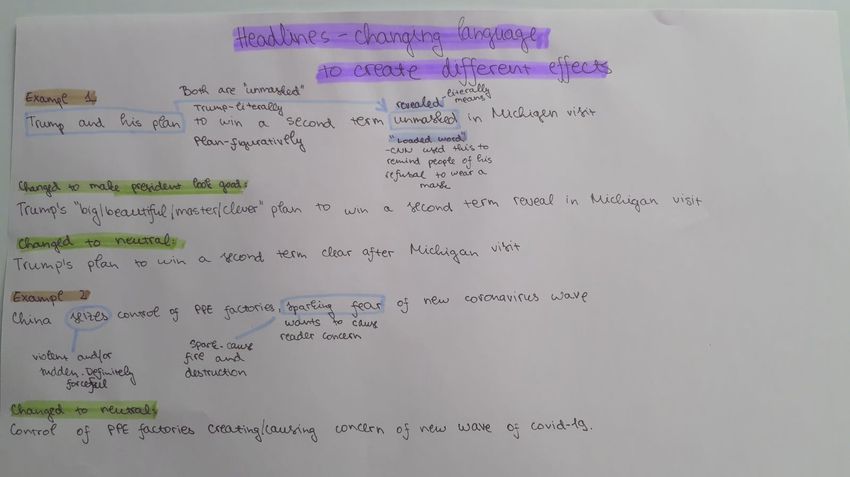 Headlines - changing language
to create different effects
Example 1
Both are "unmasked"
Trump-literally
Plan-figuratively
revealed-literally
means
Trump and his plan to win a second term unmasked in Michigen visit
"Loaded word"
-CNN used this to
remind people of his
refusal to wear a
mask
Changed to make president look good:
Trump's "big/beautiful/master/clever" plan to win a second term reveal in Michigan visit
Changed to neutral:
Trump's plan to win a second term clear after Michigan visit
Example 2
China seizes control of PPE factories, sparking fear of new coronavirus wave
violent and/or
sudden. Definitely
forceful
Spark-cause
fire and
destruction
wants to cause
reader concern
Changed to neutral:
Control of PPE factories creating/causing concern of new wave of covid-19.